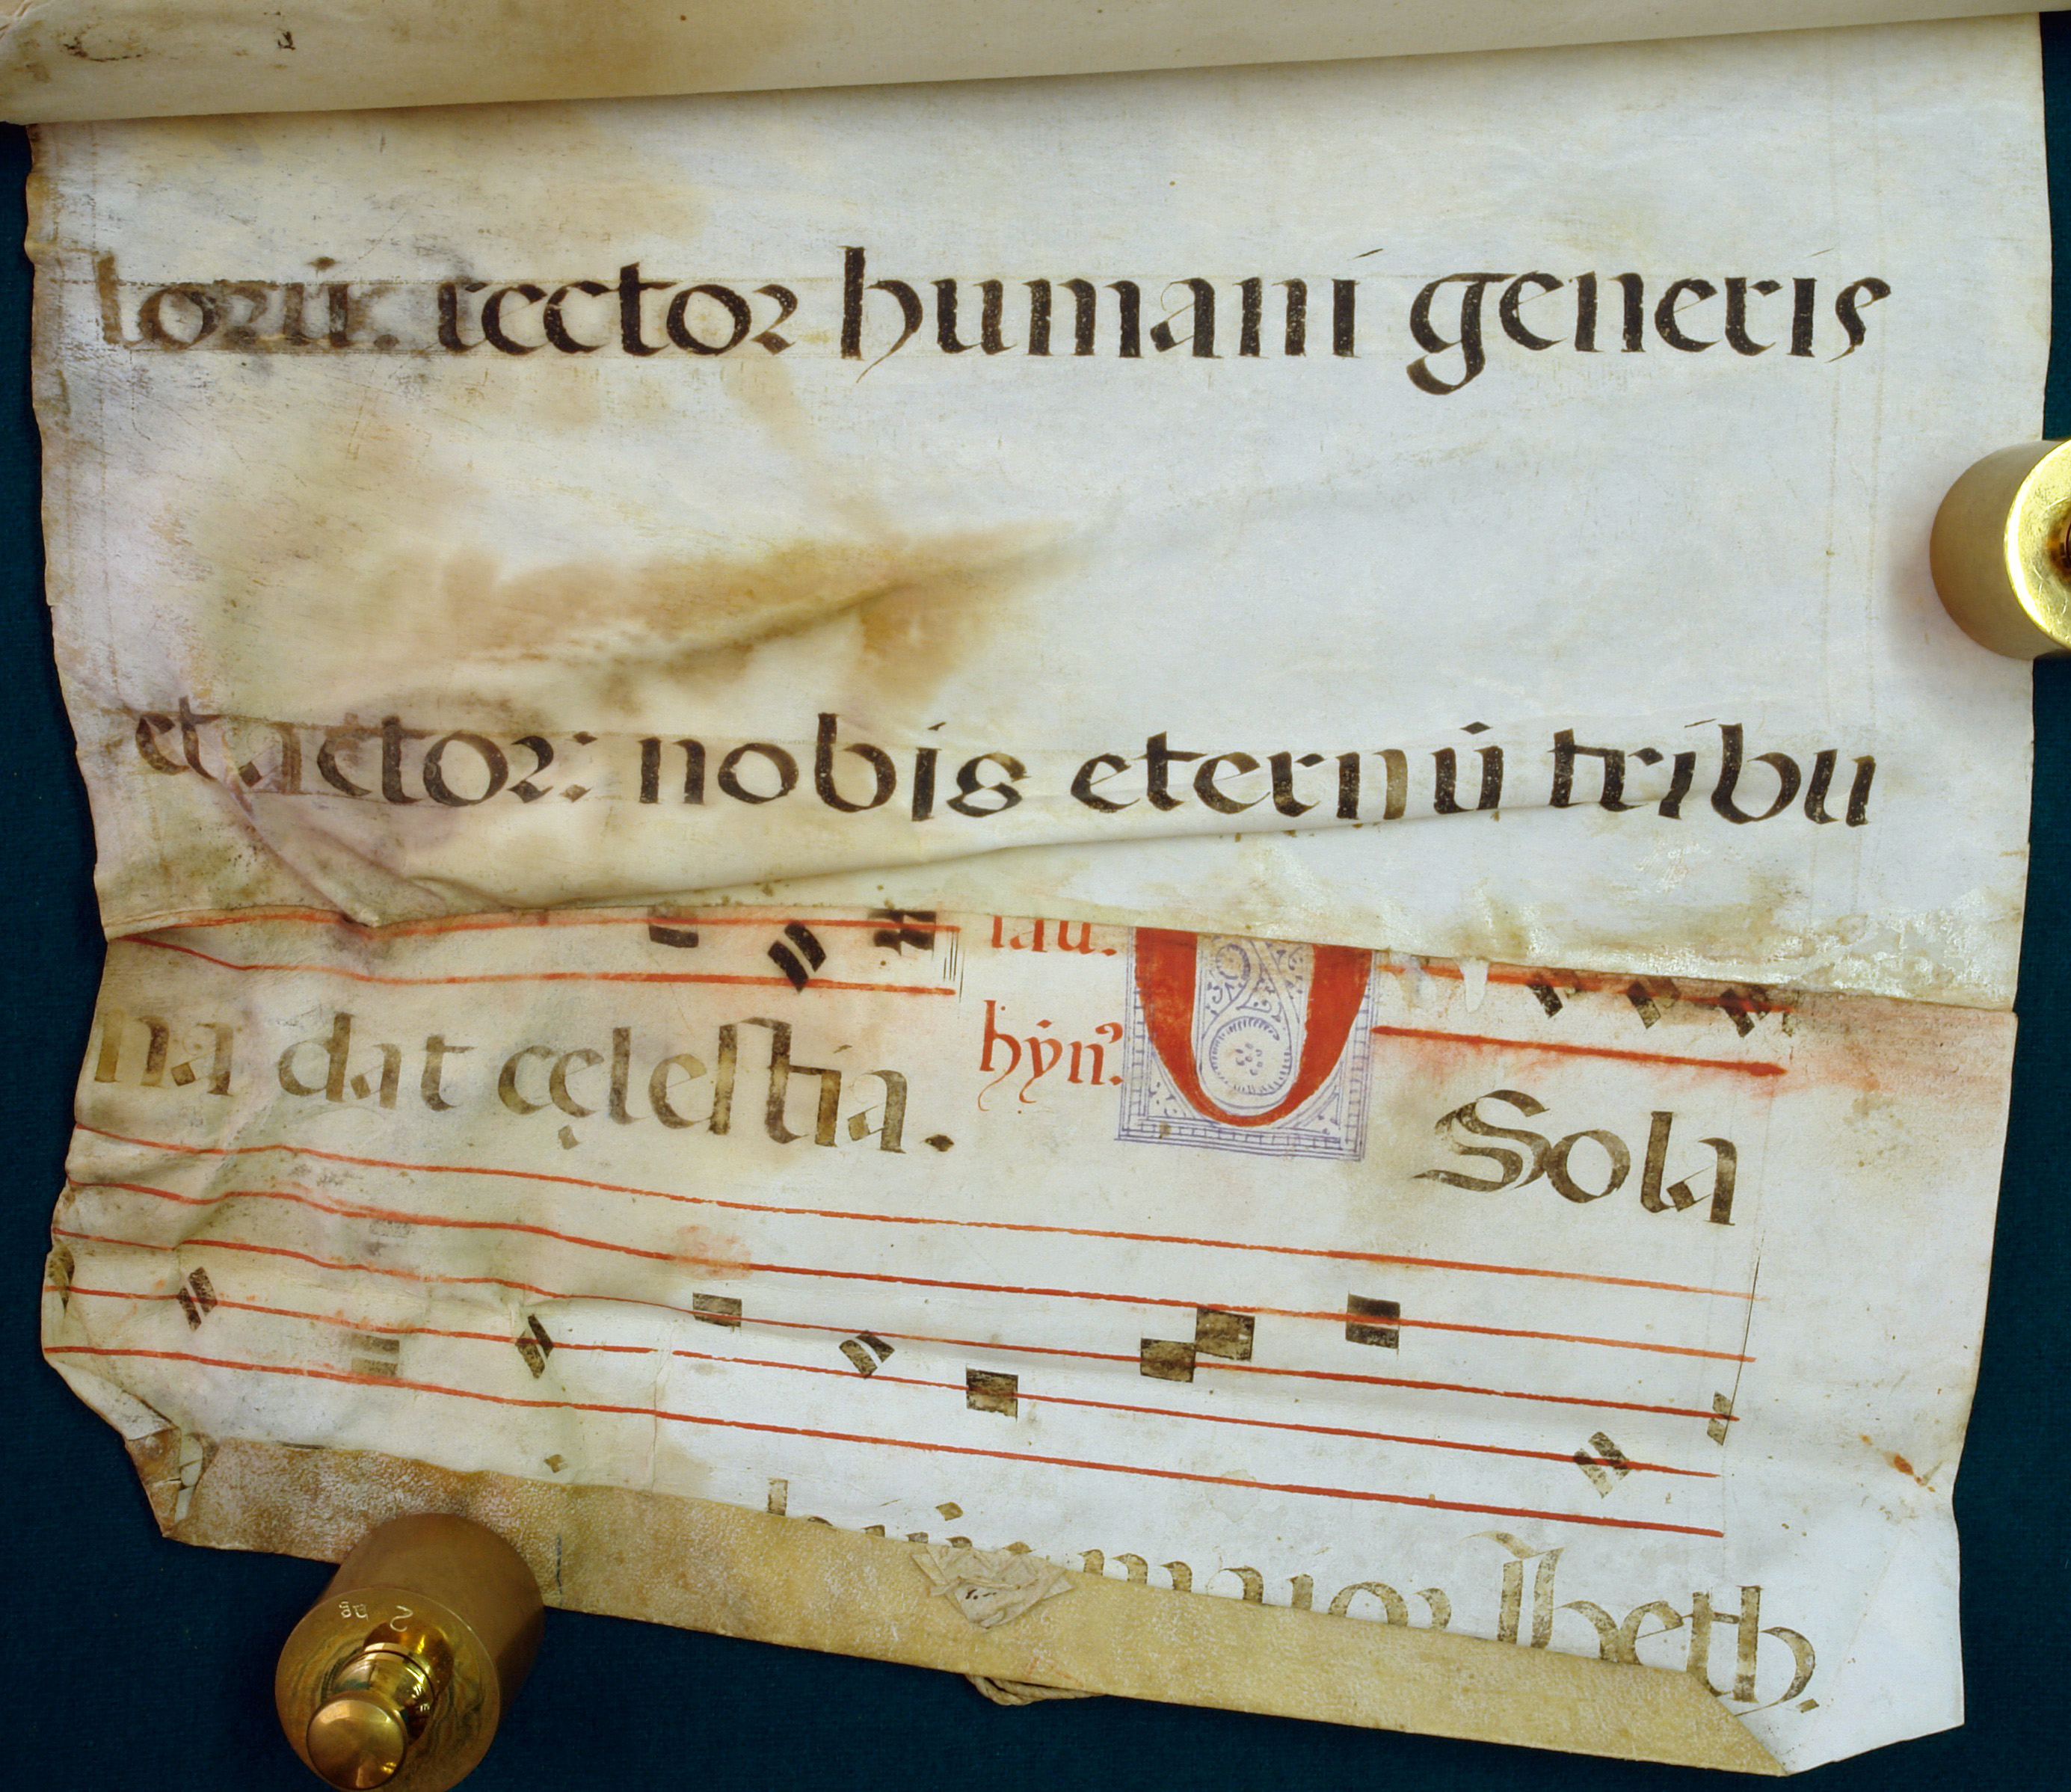 toris. rector humani generis
et actor: nobis eternū tribu
lau.
na dat cęlestia. hyn̄. O Sola
maior Bheth.